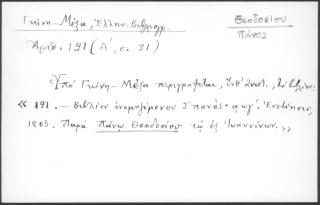 Γκίνη - Μέξα, Ἑλλην. Βιβλιογρ.
Θεοδοσίου
Πάνος
Ἀριθ. 191 (Α´, σ. 31)
Ὑπὸ Γκίνη - Μέξα περιγράφεται, ὑπ' ἀριθ. , τὸ βιβλίον:
« 191. - Βιβλίον ὀνομαζόμενον Σπανός· αωγ´. Ἐνετίησιν,
1803. Παρὰ Πάνῳ Θεοδοσίου τῷ ἐξ Ἰωαννίνων. »